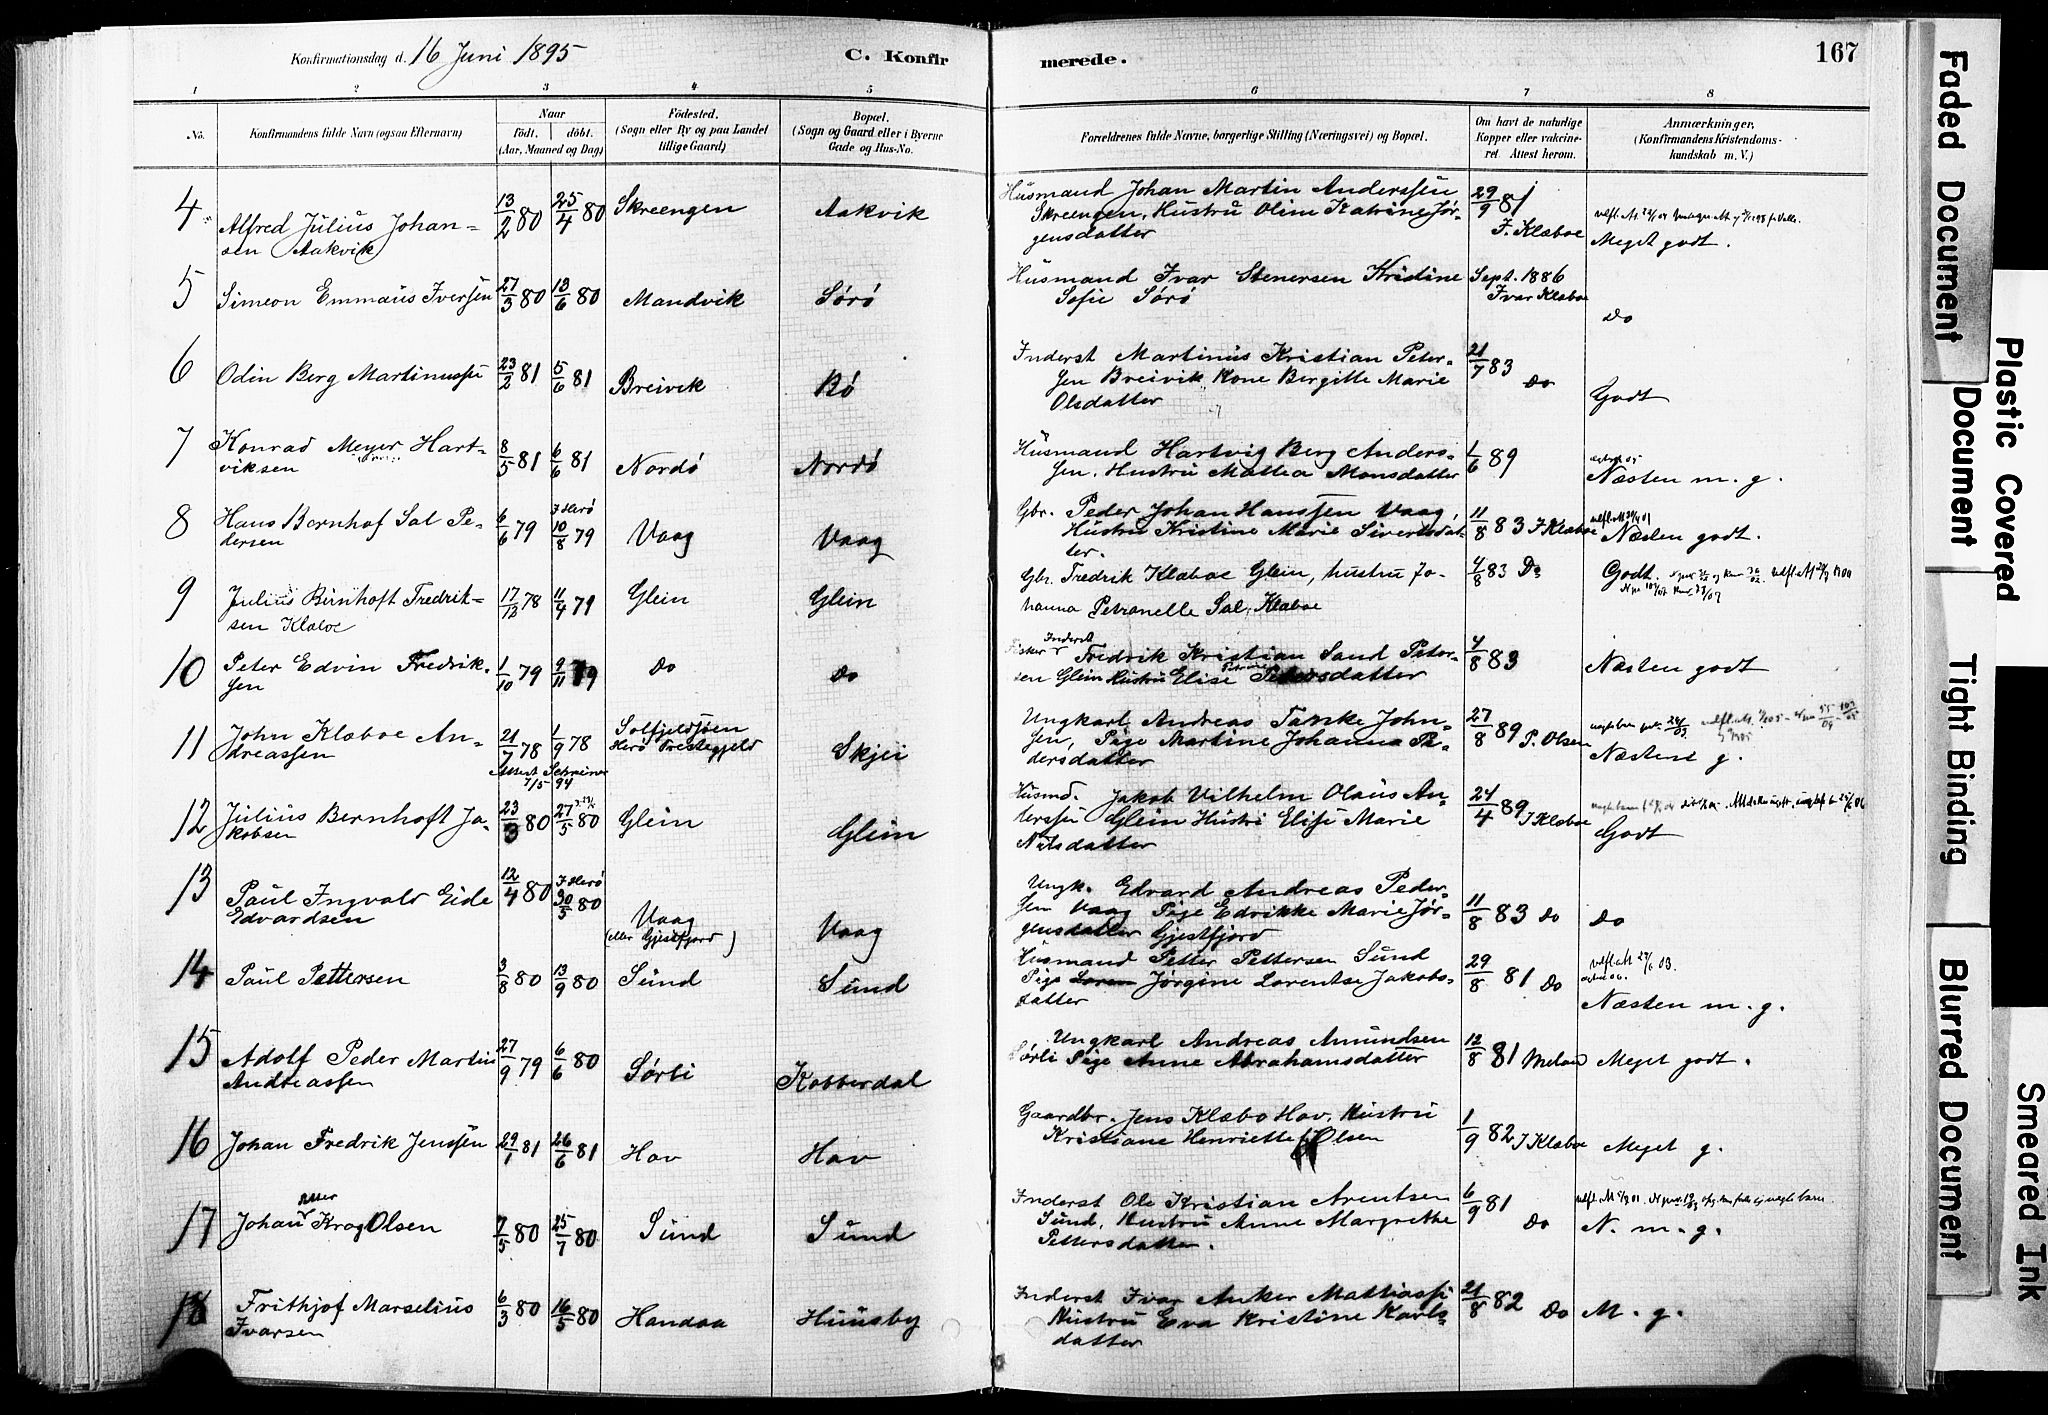 Konfirmationsdag d. 16 Juni 1895 C. Konfir
merede. 167
1 2 3 4 5 6 7 8
No. Konfirmandens fulde Navn (ogsaa Efternavn) Naar født. døbt. (Aar, Maaned og Dag) Fødested. (Sogn eller By og paa Landet tillige Gaard) Bopæl. (Sogn og Gaard eller i Byerne Gade og Hus-No. Forældrenes fulde Navne, borgerlige Stilling (Næringsvei) og Bopæl. Om havt de naturlige Kopper eller vakcineret Attest herom. Anmærkninger, (Konfirmandens Kristendomskundskab m. V.)
4 Alfred Julius Johan= 13/2 80 25/4 80 Skreengen Aakvik Husmand Johan Martin Anderssen 29/9 81
sen Aakvik Skreengen, Hustru Oline Katrine Jør- J. Klæboe
gensdatter Meget godt.
5 Simeon Emmaus Iversen 27/3 80 13/6 80 Mandvik Sørø Husmand Ivar Stenersen Kristine Sept. 1886
Sofie Sørø Ivar Klæboe
Do
6 Odin Berg Martinussen 23/2 81 5/6 81 Breivik Bø Inderst Martinus Kristian Peter- 21/7 83
sen Breivik Kone Bergitte Marie Do
Olsdatter Godt
7 Konrad Meyer Hart- 8/5 81 6/6 81 Nordø Nordø Husmand Hartvig Berg Anders- 1/6 89
viksen sen. Hustru Mattea Monsdatter Næsten m. g.
8 Hans Bernhof Sal Pe- 6/6 79 I Herø 10/8 79 Vaag Vaag Gbr. Peder Johan Hanssen Vaag,
dersen Hustru Kristine Marie Sivertsdat- 11/8 83 I Klæboe Næsten godt.
ter.
9 Julius Bernhoft Fredrik= 17/12 78 11/4 79 Glein Glein Gbr. Fredrik Klæboe Glein, hustru Jo- 4/8 83 Do Godt.
sen Klæboe hanna Petronelle Sal. Klæboe
10 Peter Edvin Fredrik- 1/10 79 9/11 79 Do Do Fisker Inderst Fredrik Kristian Sand Peter- 4/8 83
sen sen Glein Hustru Elise Petersdatter Næsten godt
11 John Klæboe An- 21/7 78 1/9 78 Solfjeldsjøen Skjei Ungkarl Andreas Tanke John- 27/8 89 P. Olsen
dreassen Herø Prestegjeld sen, Pige Martine Johanna Pe-
Attest Schreiner 7/5 94 dersdatter Næsten g.
12 Julius Bernhoft Ja- 23/3 80 27/5 80 Glein Glein Husmd. Jakob Vilhelm Olaus An- 24/4 89 I Klæboe
kobsen derssen Glein Hustru Elise Marie Godt
Nilsdatter
13 Paul Ingvald Eide 12/4 80 I Herø 30/5 80 Vaag Vaag Ungk. Edvard Andreas Peder-
Edvardsen (eller Gjestfjord) sen Vaag Pige Edrikke Marie Jør- 11/8 83 Do Do
gensdatter Gjestfjord
14 Paul Pettersen 3/8 80 13/9 80 Sund Sund Husmand Petter Pettersen Sund 29/8 81 Do
Pige Jørgine Lorentse Jakobs-
datter Næsten m. g.
15 Adolf Peder Martin 27/9 79 6/6 80 Sørli Kobberdal Ungkarl Andreas Amundsen 12/8 81
Andreassen Sørli Pige Anne Abrahamsdatter Meget godt.
16 Johan Fredrik Jenssen 29/1 81 26/6 81 Hov Hov Gaardbr. Jens Klæbo Hov. Hustru 1/9 82 I Klæboe
Kristiane Henriette Olsen Meget g.
17 Johan Petter Krog Olsen 7/5 80 25/7 80 Sund Sund Inderst Ole Kristian Arentsen 6/9 81
Sund, Hustru Anne Margrethe Do N. m. g.
Pettersdatter.
18 Frithjof Marselius 6/3 80 16/5 80 Handaa Huusby Inderst Ivar Anker Mathiassen 21/8 82 Do M. g.
Ivarsen Hustru Eva Kristine Karls-
datter
Faded Document
Plastic Covered Document
Tight Binding
Blurred Document
Smeared Ink